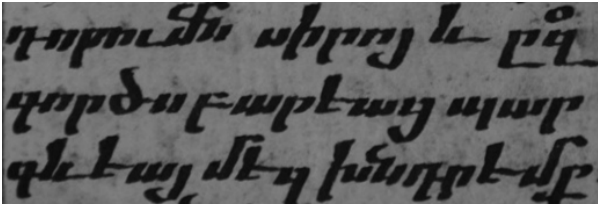 դորումն սիրոյ և ըզ
գործս բարեաց պար
գևեայ մեզ խնդրեմք